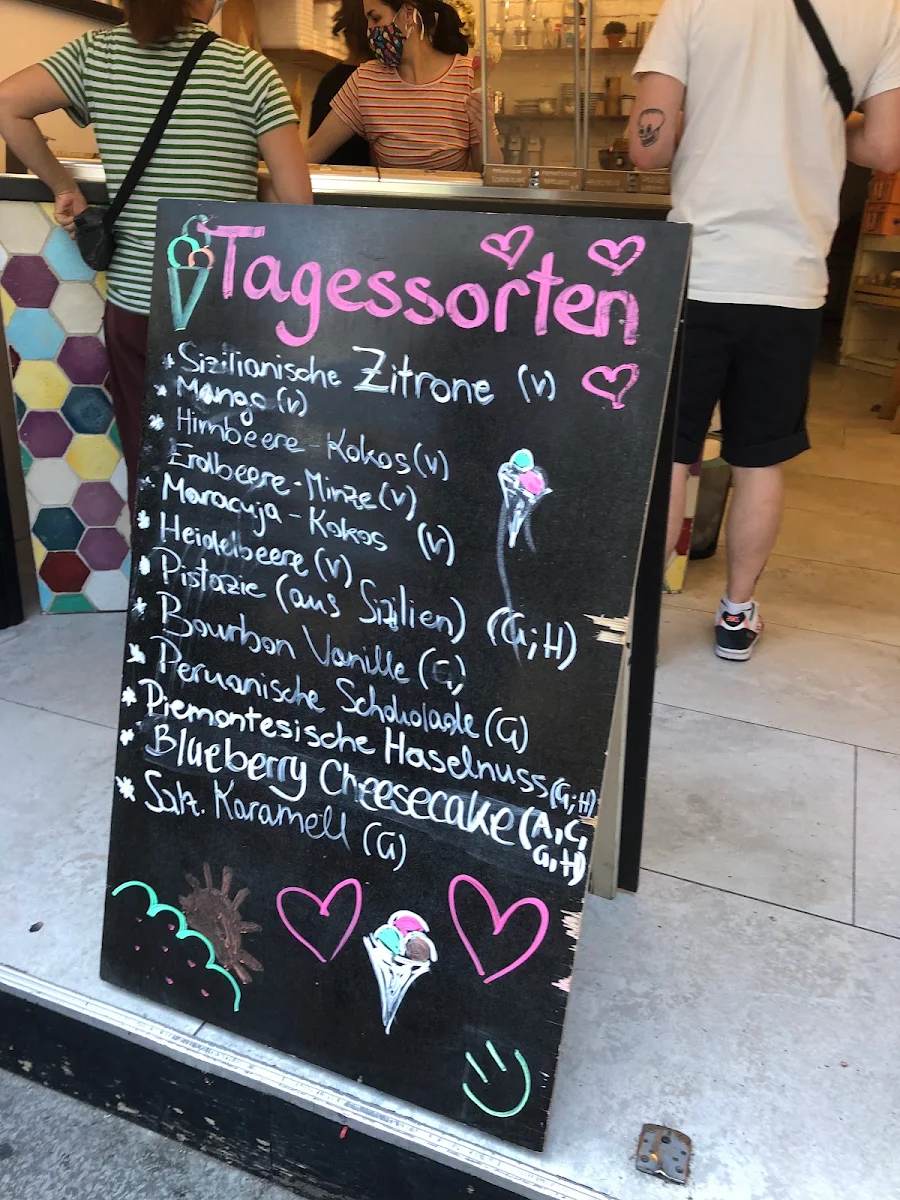 Tagessorten
* Sizilianische Zitrone (v)
* Mango (v)
* Himbeere - Kokos (v)
Erdbeere - Minze (v)
* Maracuja - Kokos (v)
* Heidelbeere (v)
* Pistazie (aus Sizilien) (G;H)
* Bourbon Vanille (G)
* Peruanische Schokolade (G)
* Piemontesische Haselnuss (G;H)
* Blueberry Cheesecake (A, C,
G, H)
* Salz. Karamell (G)